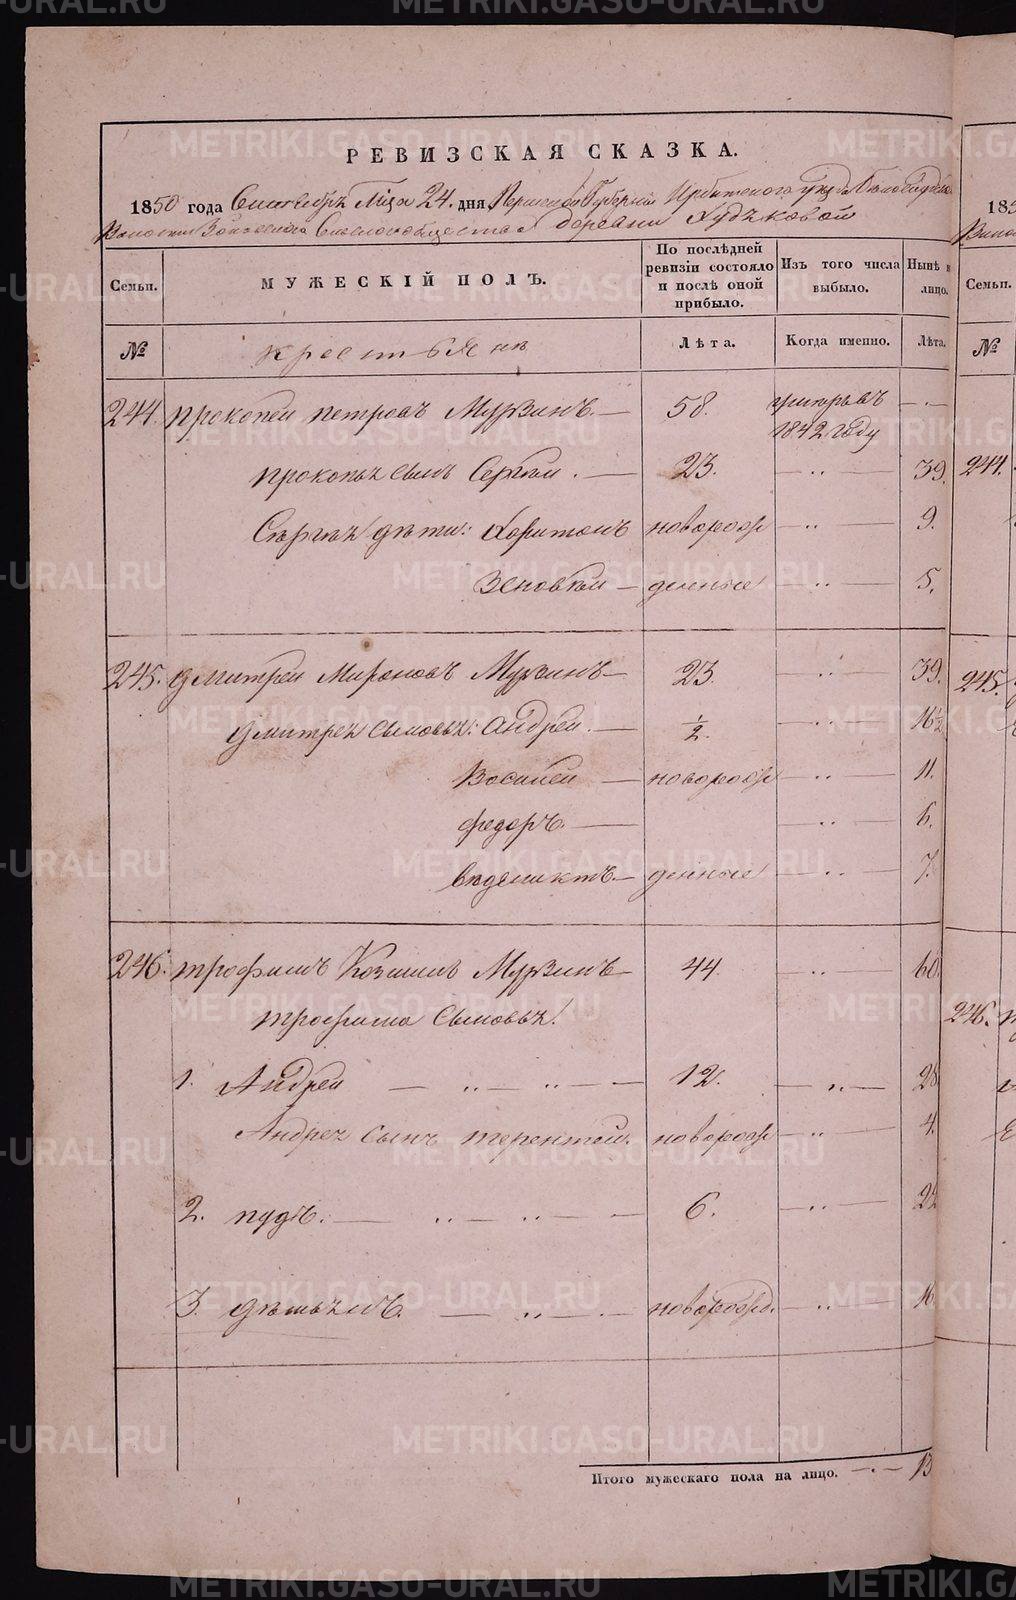 METRIKI.GASO-URAL.RU
РЕВИЗСКАЯ СКАЗКА.
1850 года Сентября М҃ца 24. дня, Пермской Губернии Ирбитского уезда
Волости Сельского общества деревни Худяковой
Семьи.
МУЖЕСКІЙ ПОЛЪ.
По послѣдней ревизіи состояло и послѣ оной прибыло.
Изъ того числа выбыло.
Нынѣ на лицо.
№
крестьяне
Лѣта.
Когда именно.
Лѣта.
244. прокопей петровъ Мурзинъ. — 58. —
1842 году
прокопья сынъ Сергей. — 23. — 39.
Сергея дети: Харитонъ новорож — 9.
Зеновей — денные — 5.
245. дмитрей Мироновъ Мурзинъ — 23. — 39.
дмитрея сыновья: андрей. — 1/2. — 16 1/2
Василей — новорож — 11.
федоръ. — 6.
венедиктъ. — денные — 7.
246. трофимъ Козминъ Мурзинъ — 44. — 60.
трофима сыновья:
1. Андрей — 12. — 28
Андрея сынъ терентей. новорож — 4.
2. — 6. — 22
3. новорожд. — 16.
Итого мужескаго пола на лицо. — 13
185
Семьи.
№
244.
245.
246.